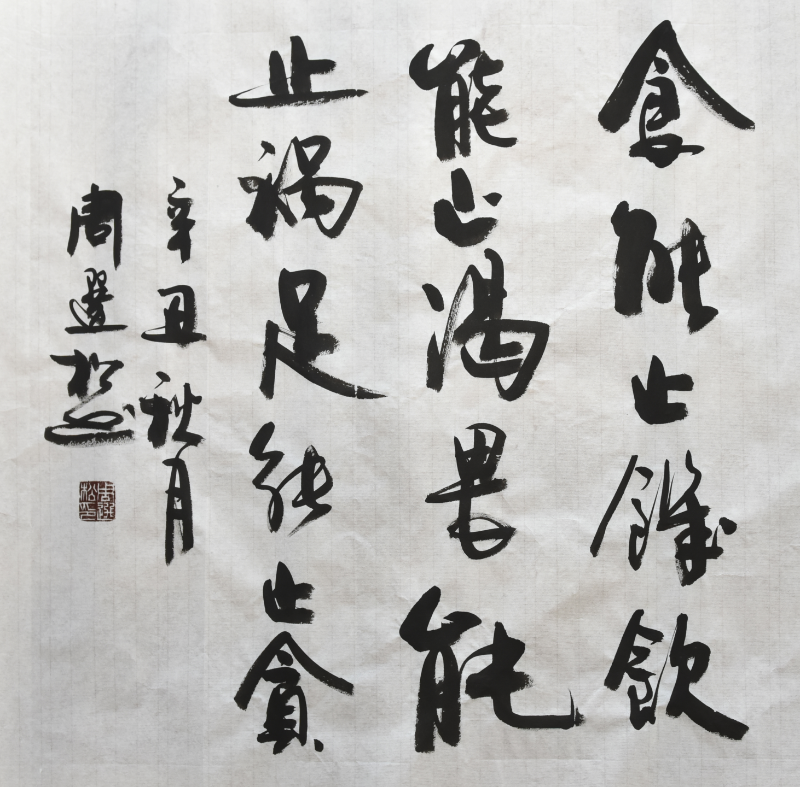 食能止饑飲
能止渴畏能
止禍足能止貪
辛丑秋月
周選松書
周選松印